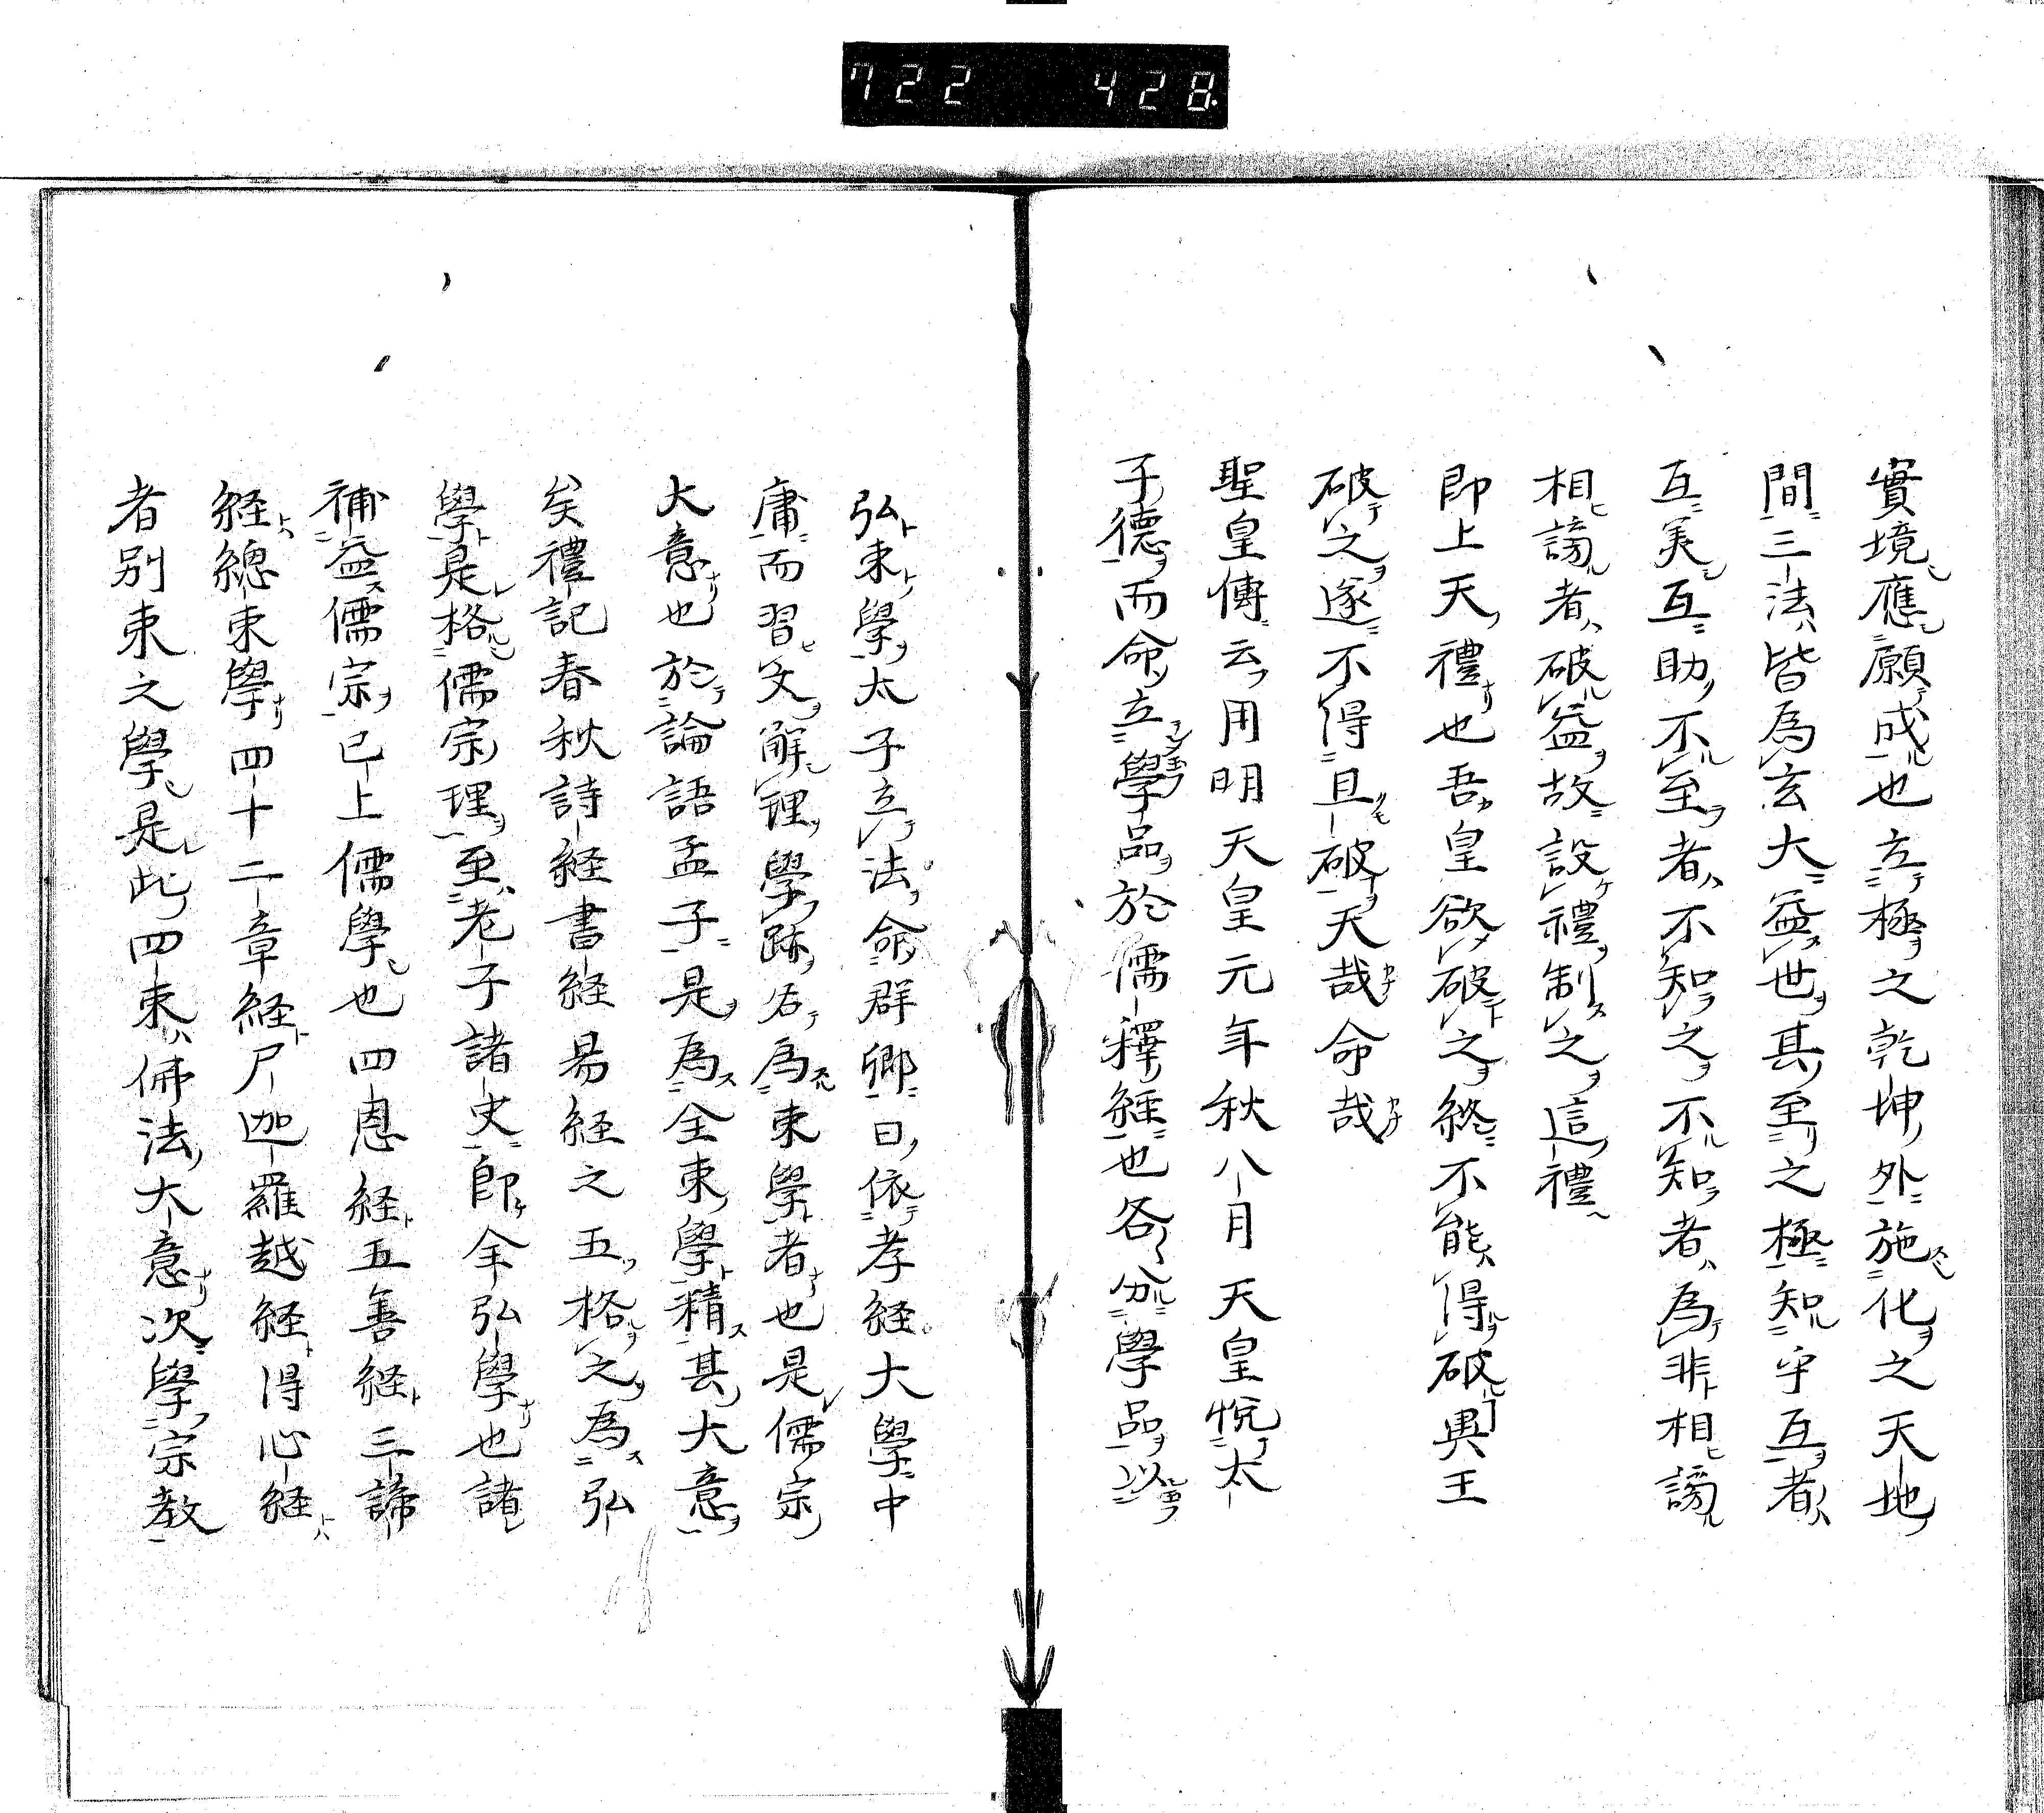 722 428
實境應願成也立極之乾坤外施化之天地
間三法皆為玄大益世其至之極知乎互者
互美互助不至者不知之不知者為非相謗
相謗者破益故設禮制之這禮
即上天禮也吾皇欲破之終不能得破興王
破之遂不得且破天哉命哉
聖皇傳云用明天皇元年秋八月天皇悅太
子德而命立學品於儒釋經也各分學品以
弘束學太子立法命群卿曰依孝経大學中
庸而習文解理學跡名為束學者也是儒宗
大意也於論語孟子是為全束學精其大意
矣禮記春秋詩経書経易経之五格之為弘
學是格儒宗理至老子諸史即全弘學也諸
補益儒宗已上儒學也四恩経五善経三諦
経總束學四十二章経尸迦羅越経得心経
者別束之學是此四束佛法大意次學宗教